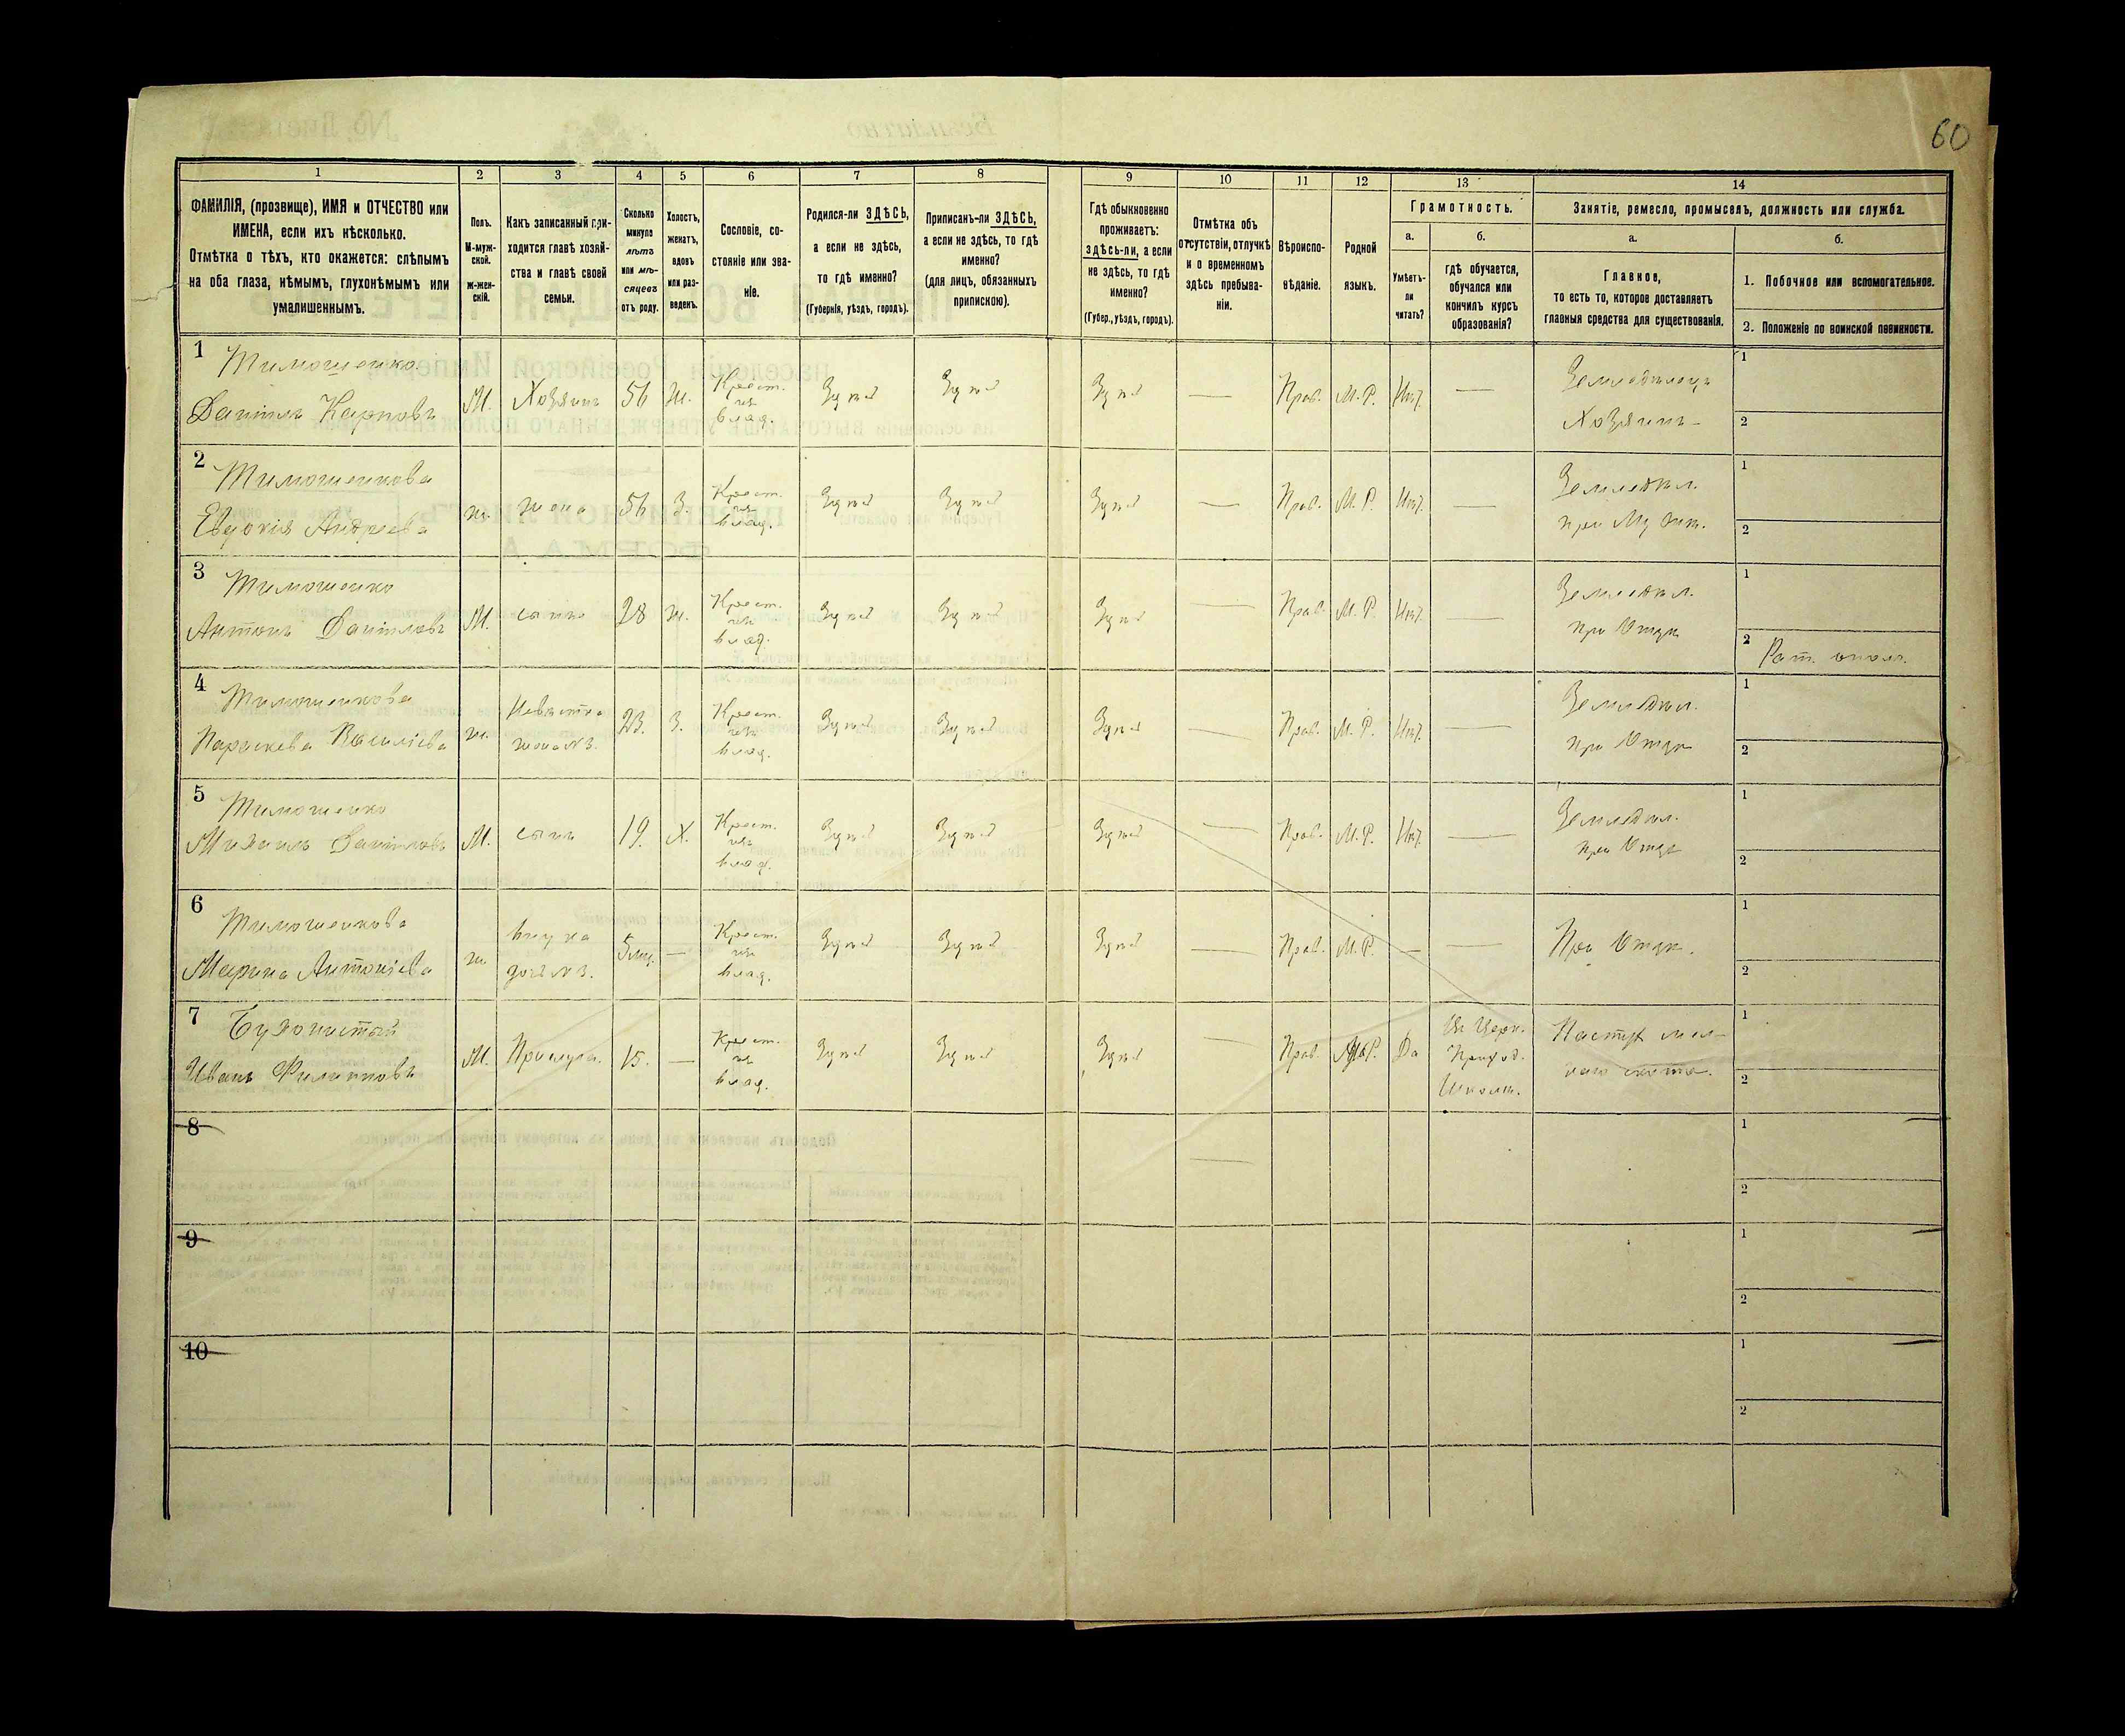 60
1 2 3 4 5 6 7 8 9 10 11 12 13 14
ФАМИЛІЯ, (прозвище), ИМЯ и ОТЧЕСТВО или
ИМЕНА, если ихъ нѣсколько.
Отмѣтка о тѣхъ, кто окажется: слѣпымъ
на оба глаза, нѣмымъ, глухонѣмымъ или
умалишеннымъ.
Полъ.
М-муж-
ской.
Ж-жен-
скій.
Какъ записанный при-
ходится главѣ хозяй-
ства и главѣ своей
семьи.
Сколько
минуло
лѣтъ
или мѣ-
сяцевъ
отъ роду.
Холостъ,
женатъ,
вдовъ
или раз-
веденъ.
Сословіе, со-
стояніе или зва-
ніе.
Родился-ли ЗДѢСЬ,
а если не здѣсь,
то гдѣ именно?
(Губернія, уѣздъ, городъ).
Приписанъ-ли ЗДѢСЬ,
а если не здѣсь, то гдѣ
именно?
(для лицъ, обязанныхъ
припискою).
Гдѣ обыкновенно
проживаетъ:
ЗДѢСЬ-ли, а если
не здѣсь, то гдѣ
именно?
(Губер., уѣздъ, городъ).
Отмѣтка объ
отсутствіи, отлучкѣ
и о временномъ
здѣсь пребыва-
ніи.
Вѣроиспо-
вѣданіе.
Родной
языкъ.
Грамотность.
а.
Умѣетъ-
ли
читать?
б.
гдѣ обучается,
обучался или
кончилъ курсъ
образованія?
Занятіе, ремесло, промыселъ, должность или служба.
а.
Главное,
то есть то, которое доставляетъ
главныя средства для существованія.
б.
1. Побочное или вспомогательное.
2. Положеніе по воинской повинности.
1 Тимошенко
Даніилъ Карповъ
М. Хозяинъ 56 ж. Крест.
влад.
Прав. М. Р. Нѣт. —
Земледѣлецъ
Хозяинъ
1
2
2 Тимошенкова
Евдокія Андреева
ж. жена 56 З. Крест.
влад.
Прав. М. Р. Нѣт. —
Земледѣл.
при
1
2
3 Тимошенко
Антонъ Даніиловъ
М. сынъ 28 ж. Крест.
влад.
Прав. М. Р. Нѣт. —
Земледѣл.
при Отцѣ
1
2 Рат. опол.
4 Тимошенкова
Параскева Василіева
ж. Невѣстка
жена N 3.
23. З. Крест.
влад.
Прав. М. Р. Нѣт. —
Земледѣл.
при Отцѣ
1
2
5 Тимошенко
Михаилъ Даніиловъ
М. сынъ 19. Х. Крест.
влад.
Прав. М. Р. Нѣт. —
Земледѣл.
при Отцѣ
1
2
6 Тимошенкова
Марина Антоніева
ж внука
дочь N 3.
5 мц. — Крест.
влад.
Прав. М. Р. — —
При Отцѣ.
1
2
7
Иванъ Филипповъ
М. 15. — Крест.
влад.
Прав. М. Р. Да
Въ Церк.
Приход.
Школѣ.
Пастухъ мел-
каго скота.
1
2
8
1
2
9
1
2
10
1
2